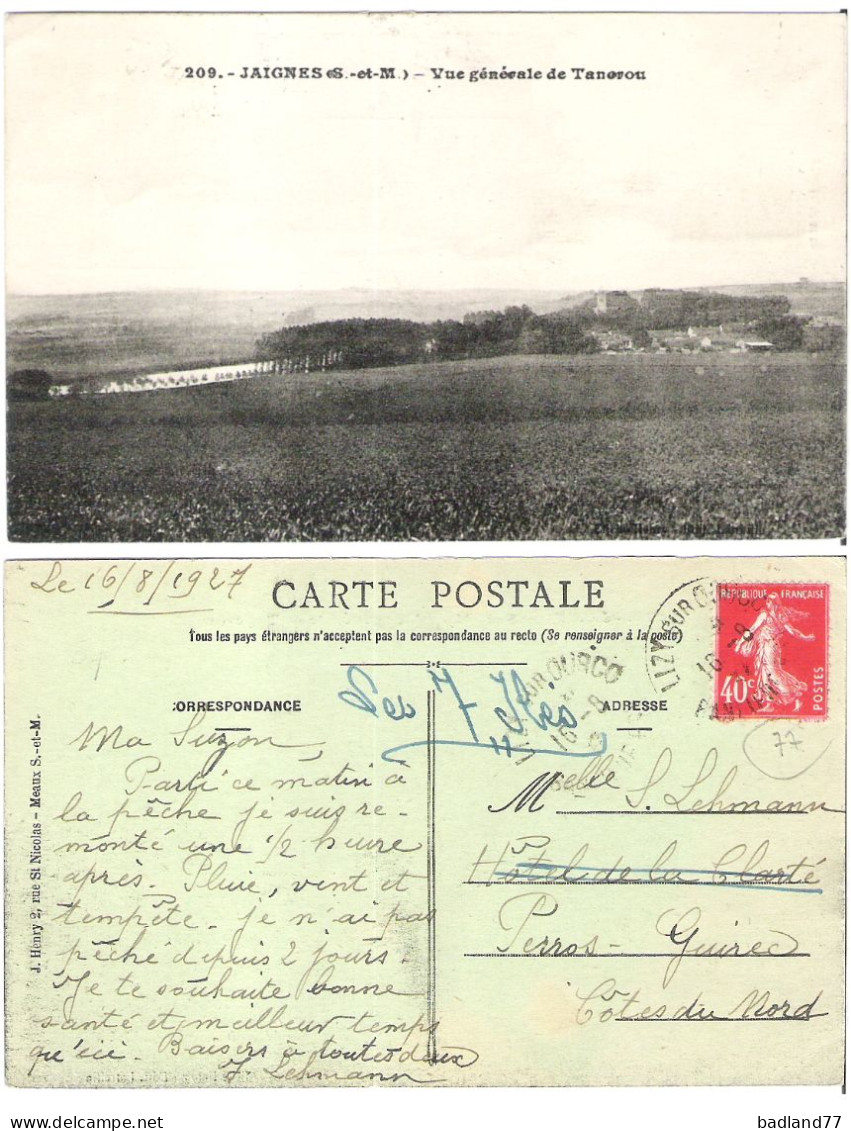 209. - JAIGNES (S.-et-M.) - Vue générale de Tancrou
Le 16/8/1927
CARTE POSTALE
Tous les pays étrangers n'acceptent pas la correspondance au recto (Se renseigner à la poste)
RÉPUBLIQUE FRANÇAISE
40c
POSTES
LIZY SUR OURCQ
16 -8
LIZY SUR OURCQ
16 -8
77
CORRESPONDANCE
ADRESSE
7 Iles
J. Henry 2, rue St Nicolas - Meaux S.-et-M.
Ma Suzon,
Parti ce matin à
la pêche je suis re-
monté une 1/2 heure
après. Pluie, vent et
tempête. je n'ai pas
pêché depuis 2 jours.
Je te souhaite bonne
santé et meilleur temps
qu'ici. Baisers à toutes deux
J. Lehmann
Melle S. Lehmann
Hôtel de la Clarté
Perros-Guirec
Côtes du Nord
badland77